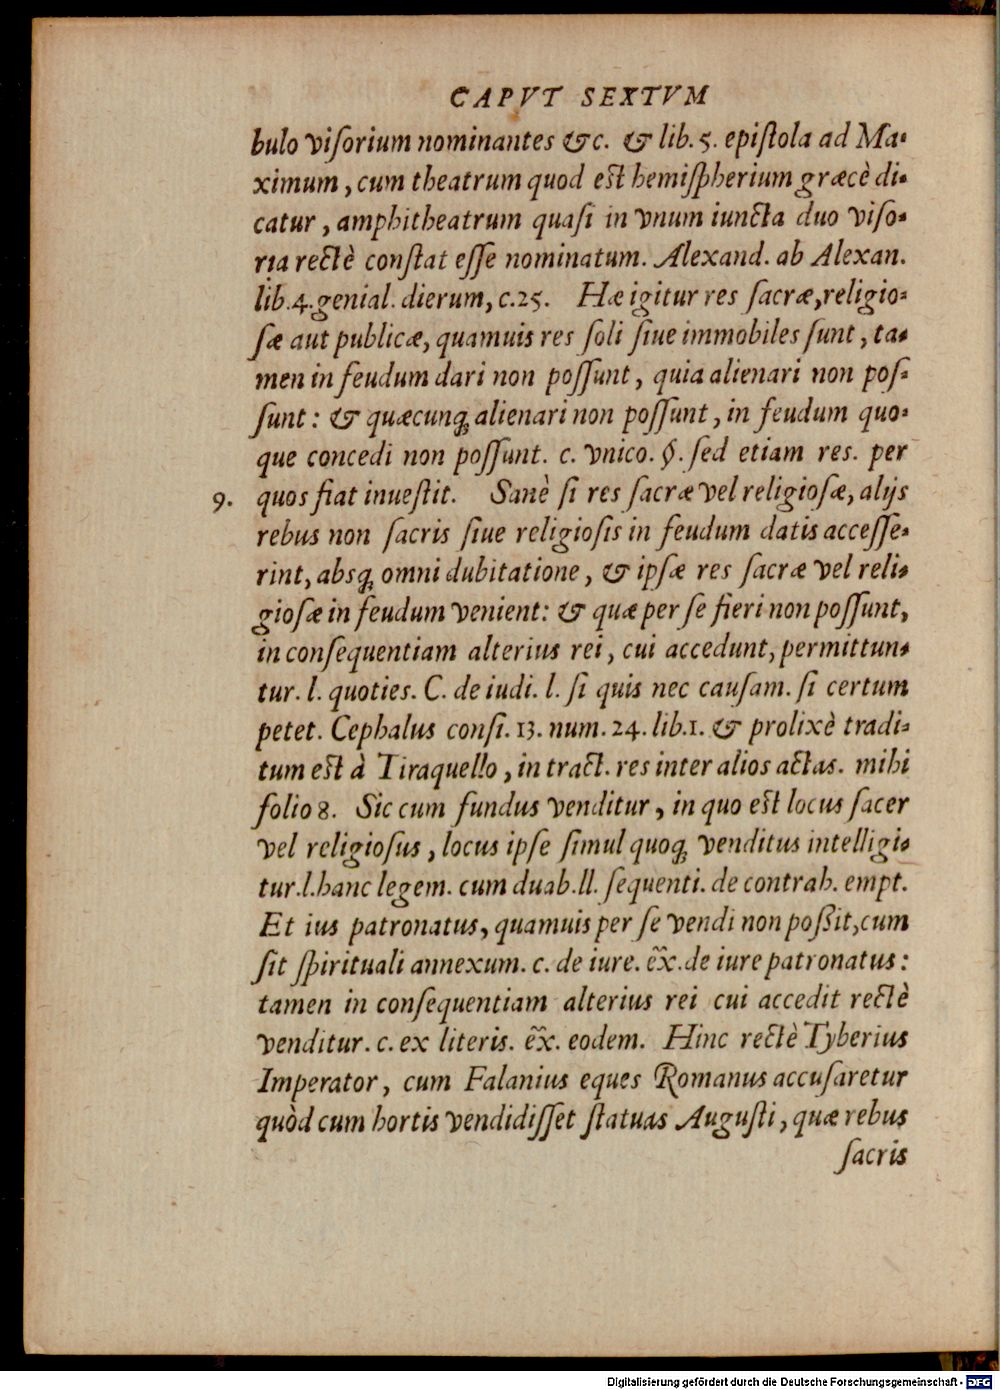 CAPVT SEXTVM
bulo viſorium nominantes &c. & lib. 5. epiſtola ad Ma-
ximum, cum theatrum quod eſt hemiſpherium græcè di-
catur, amphitheatrum quaſi in vnum iuncta duo viſo-
ria rectè conſtat eſſe nominatum. Alexand. ab Alexan.
lib. 4. genial. dierum, c. 25. Hæ igitur res ſacræ, religio-
ſæ aut publicæ, quamuis res ſoli ſiue immobiles ſunt, ta-
men in feudum dari non poſſunt, quia alienari non poſ-
ſunt: & quæcunq; alienari non poſſunt, in feudum quo-
que concedi non poſſunt. c. vnico. §. ſed etiam res. per
9. quos fiat inueſtit. Sanè ſi res ſacræ vel religioſæ, alijs
rebus non ſacris ſiue religioſis in feudum datis acceſſe-
rint, absq; omni dubitatione, & ipſæ res ſacræ vel reli-
gioſæ in feudum venient: & quæ per ſe fieri non poſſunt,
in conſequentiam alterius rei, cui accedunt, permittun-
tur. l. quoties. C. de iudi. l. ſi quis nec cauſam. ſi certum
petet. Cephalus conſi. 13. num. 24. lib. 1. & prolixè tradi-
tum eſt à Tiraquello, in tract. res inter alios actas. mihi
folio 8. Sic cum fundus venditur, in quo eſt locus ſacer
vel religioſus, locus ipſe ſimul quoq; venditus intelligi-
tur. l. hanc legem. cum duab. ll. ſequenti. de contrah. empt.
Et ius patronatus, quamuis per ſe vendi non poßit, cum
ſit ſpirituali annexum. c. de iure. ex̃. de iure patronatus:
tamen in conſequentiam alterius rei cui accedit rectè
venditur. c. ex literis. ex̃. eodem. Hinc rectè Tyberius
Imperator, cum Falanius eques Romanus accuſaretur
quòd cum hortis vendidiſſet ſtatuas Auguſti, quæ rebus
ſacris
Digitalisierung gefördert durch die Deutsche Forschungsgemeinschaft - DFG